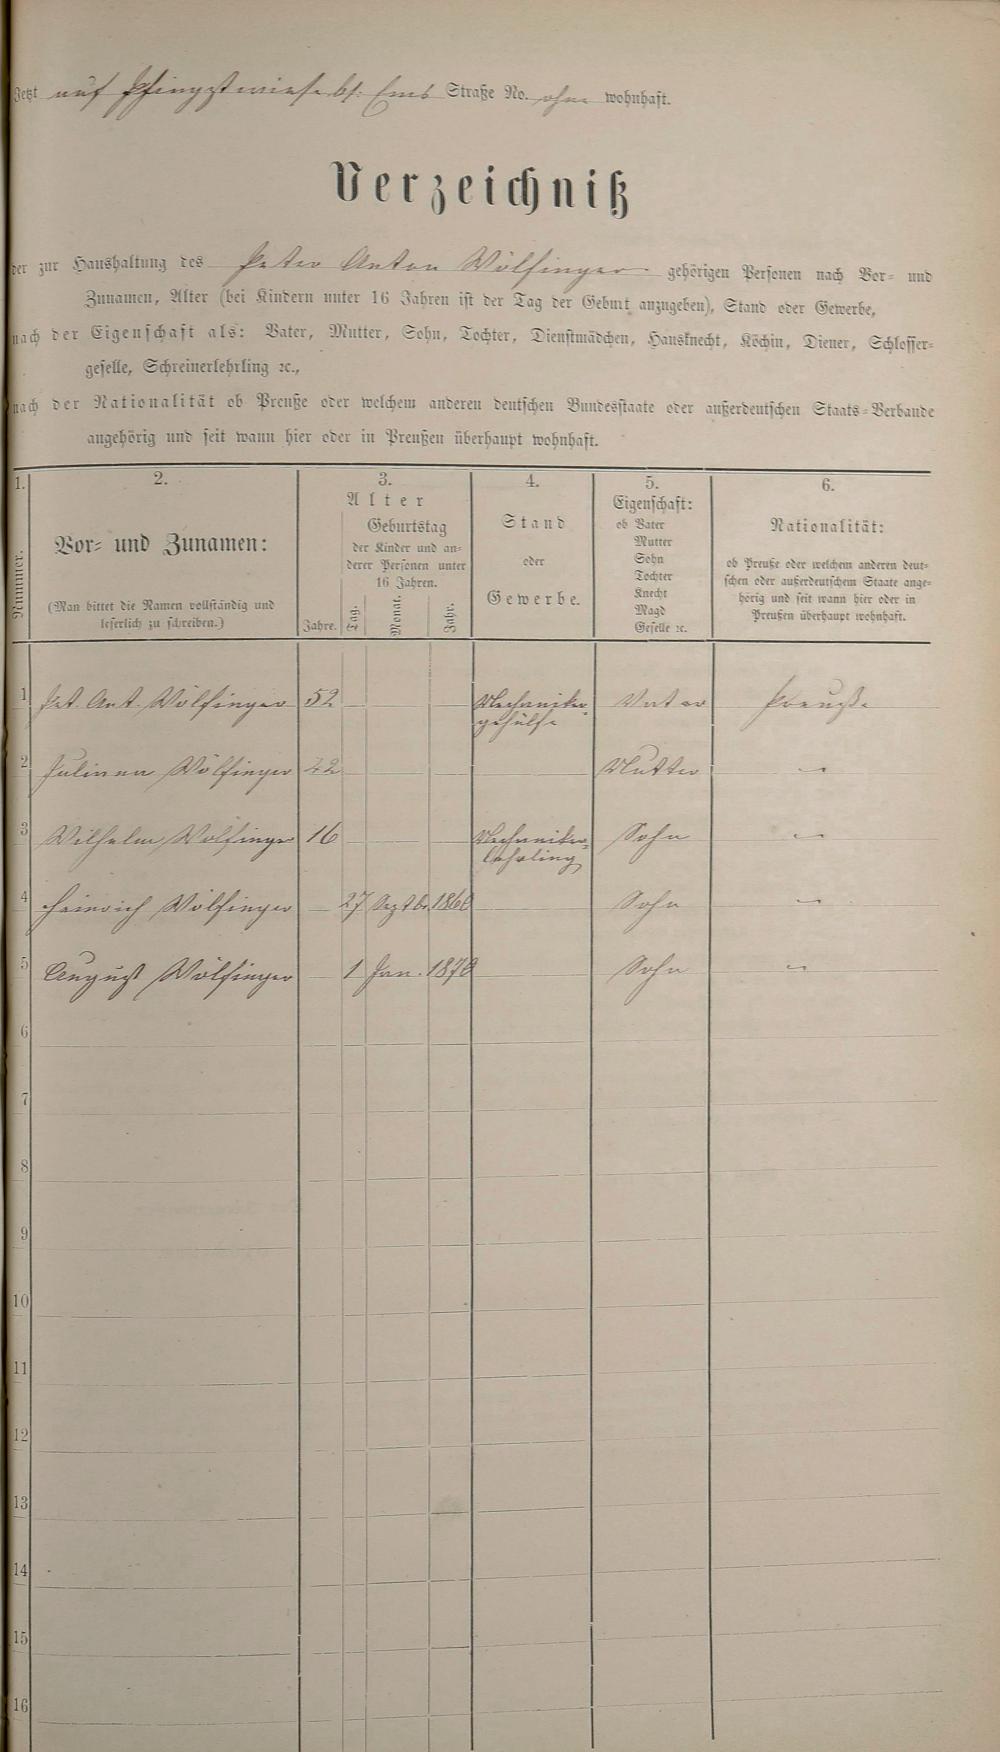 Jetzt auf Pfingstwiese bf. Ems Straße No. ohne wohnhaft.
Verzeichniß
der zur Haushaltung des Peter Anton Wölfinger gehörigen Personen nach Vor- und
Zunamen, Alter (bei Kindern unter 16 Jahren ist der Tag der Geburt anzugeben), Stand oder Gewerbe,
nach der Eigenschaft als: Vater, Mutter, Sohn, Tochter, Dienstmädchen, Hausknecht, Köchin, Diener, Schlosser-
geselle, Schreinerlehrling ꝛc.,
nach der Nationalität ob Preuße oder welchem anderen deutschen Bundesstaate oder außerdeutschen Staats-Verbande
angehörig und seit wann hier oder in Preußen überhaupt wohnhaft.
1. 2. 3. 4. 5. 6.
Nummer.
Vor- und Zunamen:
(Man bittet die Namen vollständig und
leserlich zu schreiben.)
Alter
Jahre.
Geburtstag
der Kinder und an-
derer Personen unter
16 Jahren.
Tag. Monat. Jahr.
Stand
oder
Gewerbe.
Eigenschaft:
ob Vater
Mutter
Sohn
Tochter
Knecht
Magd
Geselle ꝛc.
Nationalität:
ob Preuße oder welchem anderen deut-
schen oder außerdeutschem Staate ange-
hörig und seit wann hier oder in
Preußen überhaupt wohnhaft.
1 Pet. Ant. Wölfinger 52 Mechaniker- Vater Preuße
gehülfe
2 Juliana Wölfinger 42 Mutter "
3 Wilhelm Wölfinger 16 Mechaniker- Sohn "
lehrling
4 Heinrich Wölfinger 27 Septbr. Sohn "
5 August Wölfinger 1 Jan. Sohn "
6
7
8
9
10
11
12
13
14
15
16